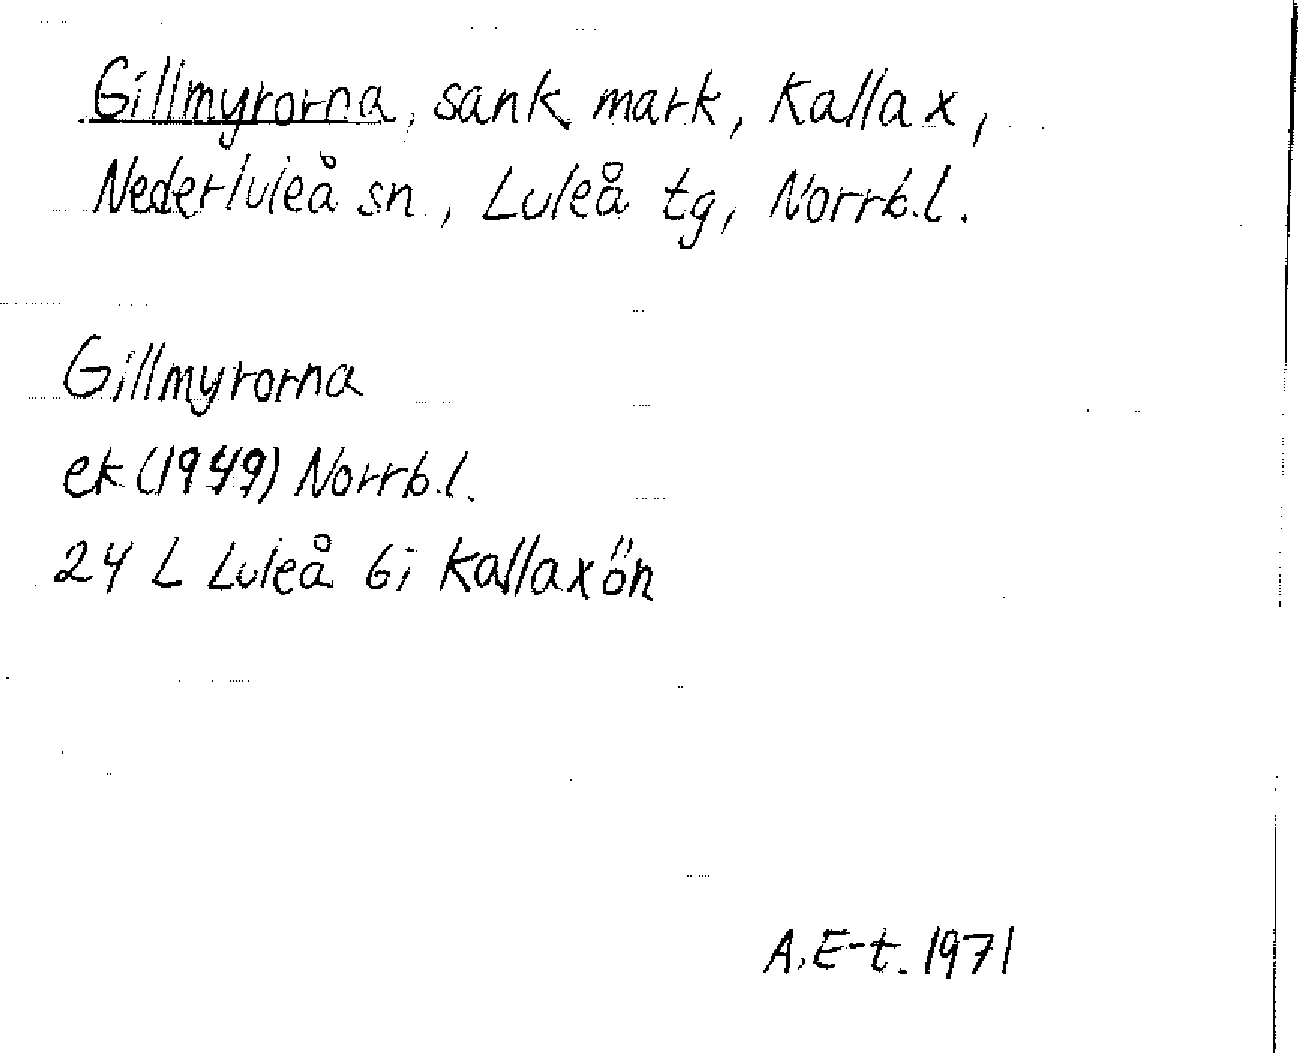 Gillmyrorna, sank mark, Kallax,
Nederluleå sn., Luleå tg, Norrb.l.
Gillmyrorna
ek (1949) Norrb.l.
24 L Luleå 6i Kallaxön
A.E-t. 1971